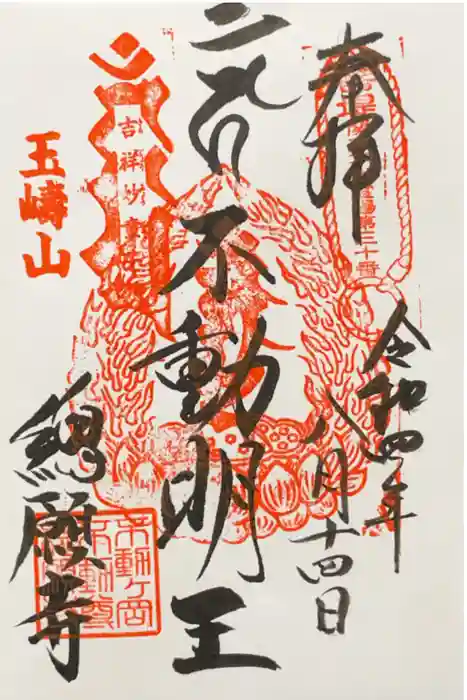 奉拝
第三十番
令和四年
八月十四日
不動明王
玉嶹山
總願寺
不動ヶ岡
不動尊